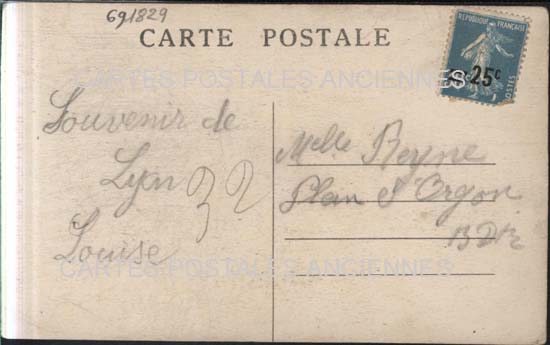 691829
CARTE POSTALE
RÉPUBLIQUE FRANÇAISE
25c
POSTES
CARTES POSTALES ANCIENNES
Souvenir de
Lyon
32
Louise
Melle Reyne
Plan d'Orgon
BDR
CARTES POSTALES ANCIENNES